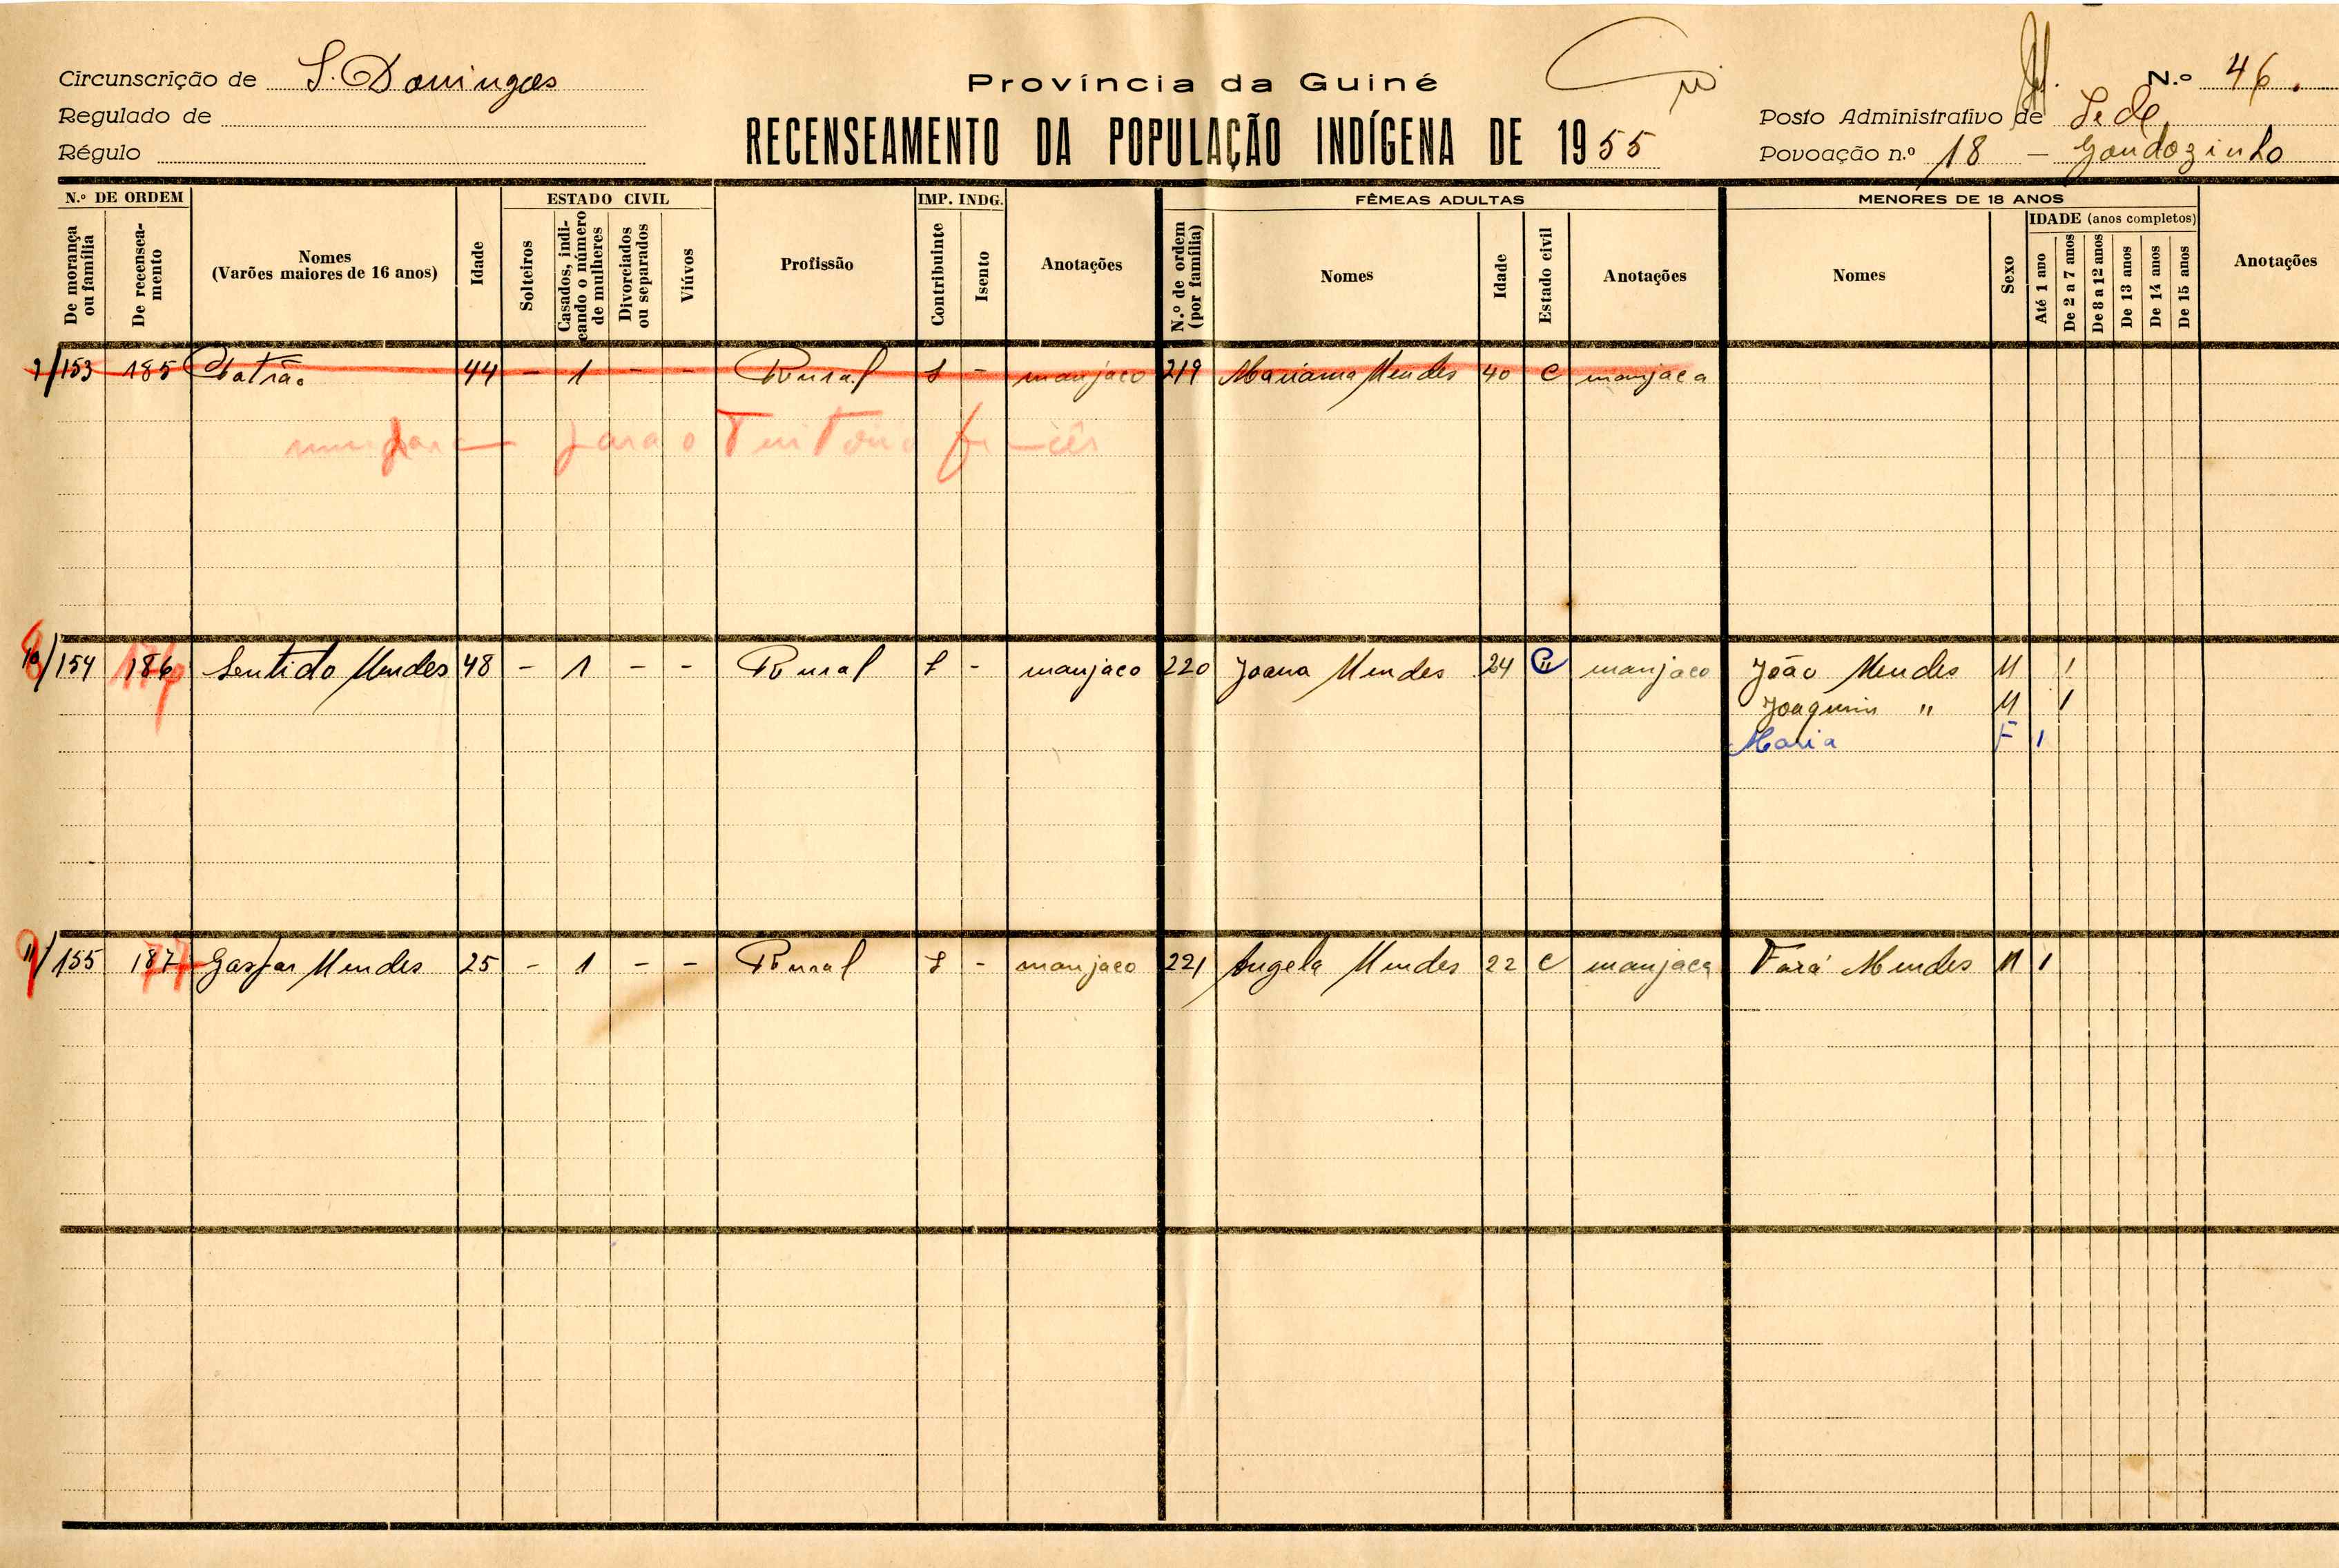 Circunscrição de S. Domingos
Regulado de
Régulo
Província da Guiné
RECENSEAMENTO DA POPULAÇÃO INDÍGENA DE 1955
N.º 46.
Posto Administrativo de Sede
Povoação n.º 18 - Gandozinho
N.º DE ORDEM
De morança ou família
De recenseamento
Nomes
(Varões maiores de 16 anos)
Idade
ESTADO CIVIL
Solteiros
Casados, indicando o número de mulheres
Divorciados ou separados
Viúvos
Profissão
IMP. INDG.
Contribuinte
Isento
Anotações
FÊMEAS ADULTAS
N.º de ordem (por família)
Nomes
Idade
Estado civil
Anotações
MENORES DE 18 ANOS
Nomes
Sexo
IDADE (anos completos)
Até 1 ano
De 2 a 7 anos
De 8 a 12 anos
De 13 anos
De 14 anos
De 15 anos
Anotações
/153 185 Patrão 44 - 1 - - Rural 1 - manjaco 219 Mariama Mendes 40 C manjaca
para o Território francês
10/154 186 Sentido Mendes 48 - 1 - - Rural 1 - manjaco 220 Joana Mendes 24 C manjaco João Mendes M 1
Joaquim " M 1
Maria F 1
11/155 187 Gaspar Mendes 25 - 1 - - Rural 1 - manjaco 221 Angela Mendes 22 C manjaca Fará Mendes M 1